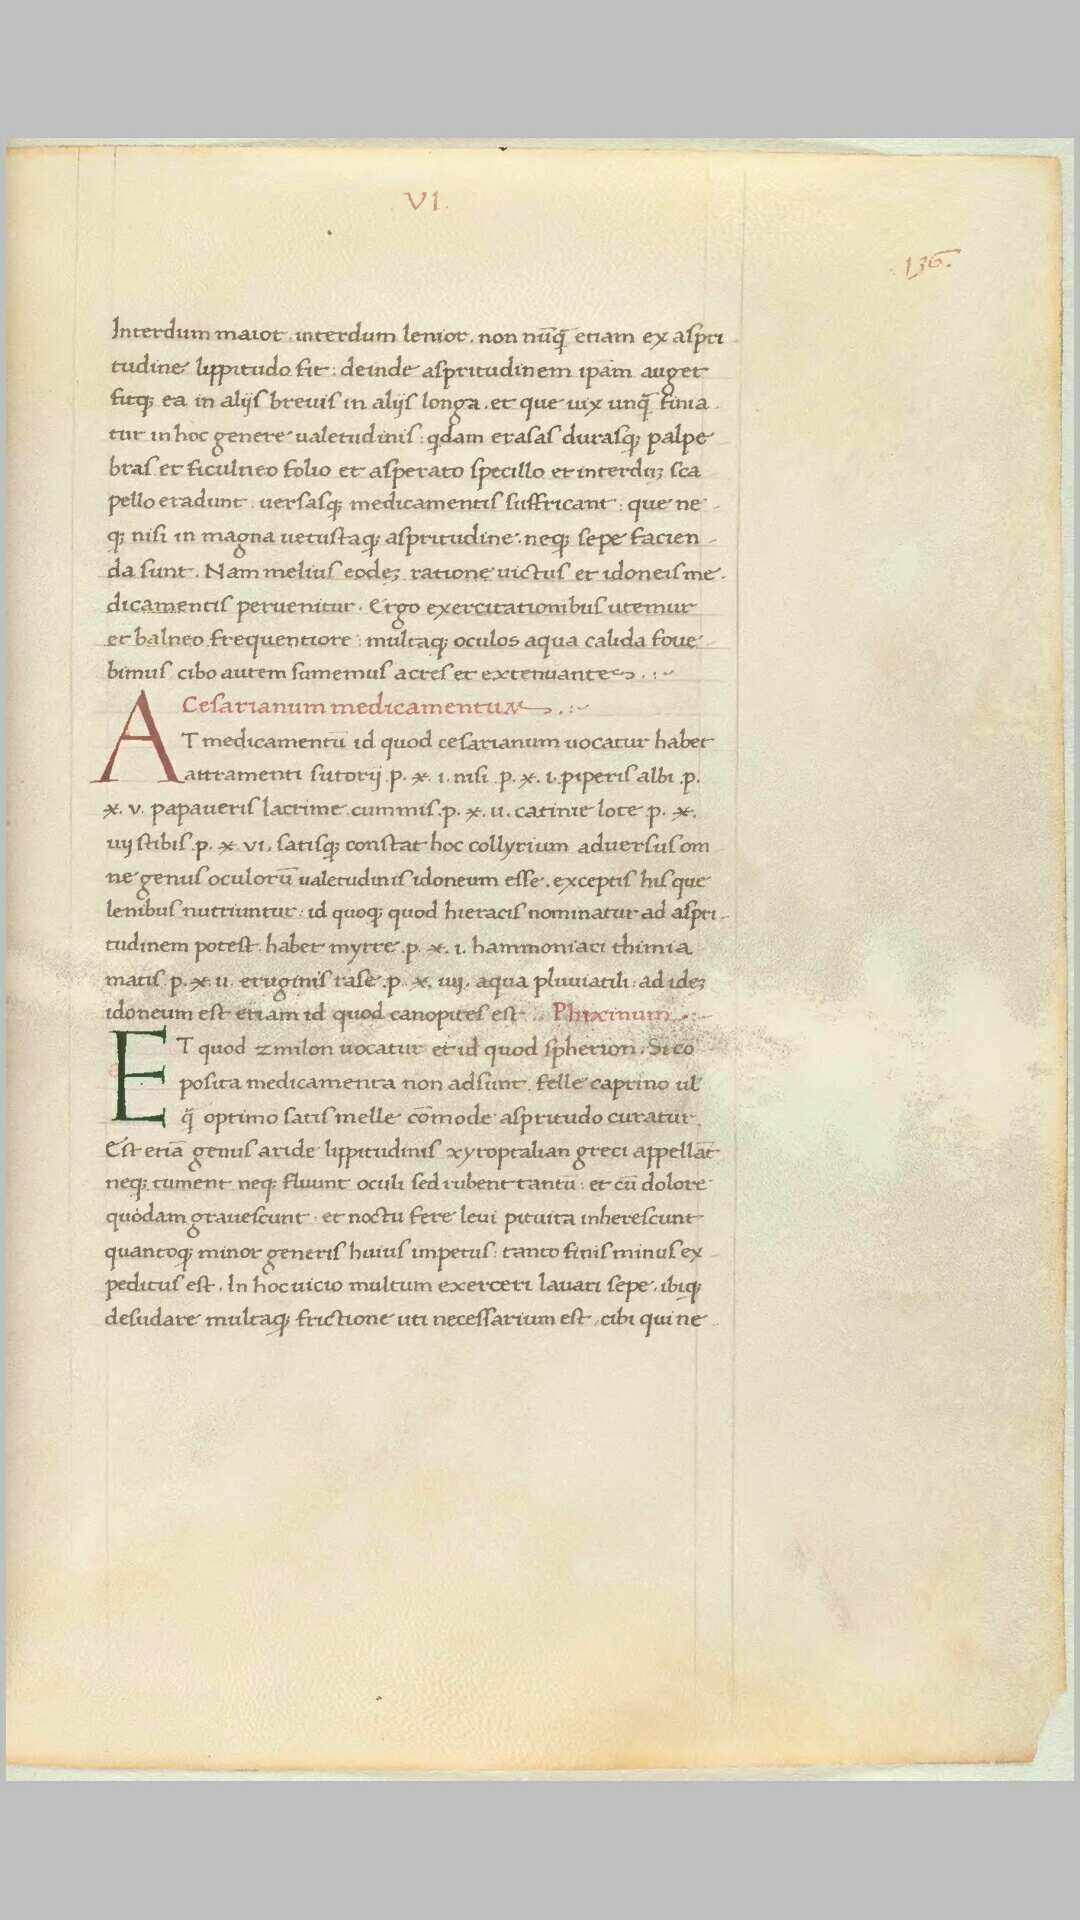 VI.
136.
Interdum maior. interdum lenior. non nūq̄ etiam ex aspri
tudine lippitudo fit: deinde aspritudinem ipam auget
fitq; ea in alijs brevis in alijs longa. et que uix unq̄ finia
tur in hoc genere ualetudinis: qdam erasas durasq; palpe
bras et ficulneo folio et asperato specillo et interdu; sca
pello eradunt. uersasq; medicamentis suffricant: que ne
q; nisi in magna uetustaq; aspritudine. neq; sepe facien
da sunt. Nam melius eode; ratione uictus et idoneis me
dicamentis peruenitur. Ergo exercitationibus utemur
et balneo frequentiore: multaq; oculos aqua calida foue
bimus cibo autem sumemus acres et extenuantes
Cesarianum medicamentum
AT medicamentū id quod cesarianum uocatur habet
attramenti sutorij .p. x. i. nisi .p. x. i. piperis albi .p.
x. v. papaueris lacrime cummis .p. x. ii. catinie lote .p. x.
iiij stibis .p. x vi. satisq; constat hoc collyrium adversus om
ne genus oculorū ualetudinis idoneum esse. exceptis his que
lenibus nutriuntur: id quoq; quod hieracis nominatur ad aspri
tudinem potest. habet myrre .p. x. i. hammoniaci thimia
matis .p. x ii eruginis rase .p. x. iiij. aqua pluuiatili: ad ide;
idoneum est etiam id quod canopites est Phixinum
ET quod zmilon uocatur et id quod spherion. Si cō
posita medicamenta non adsunt. felle caprino ul̄
q̄ optimo satis melle cōmode aspritudo curatur.
Est etiā genus aride lippitudinis xyroptalian greci appellāt
neq; tument neq; fluunt oculi sed rubent tantū: et cū dolore
quodam grauescunt: et noctu fere leui pituita inherescunt
quantoq; minor generis huius impetus: tanto finis minus ex
peditus est. In hoc uicio multum exerceri lauari sepe. ibiq;
desudare multaq; frictione uti necessarium est. cibi qui ne